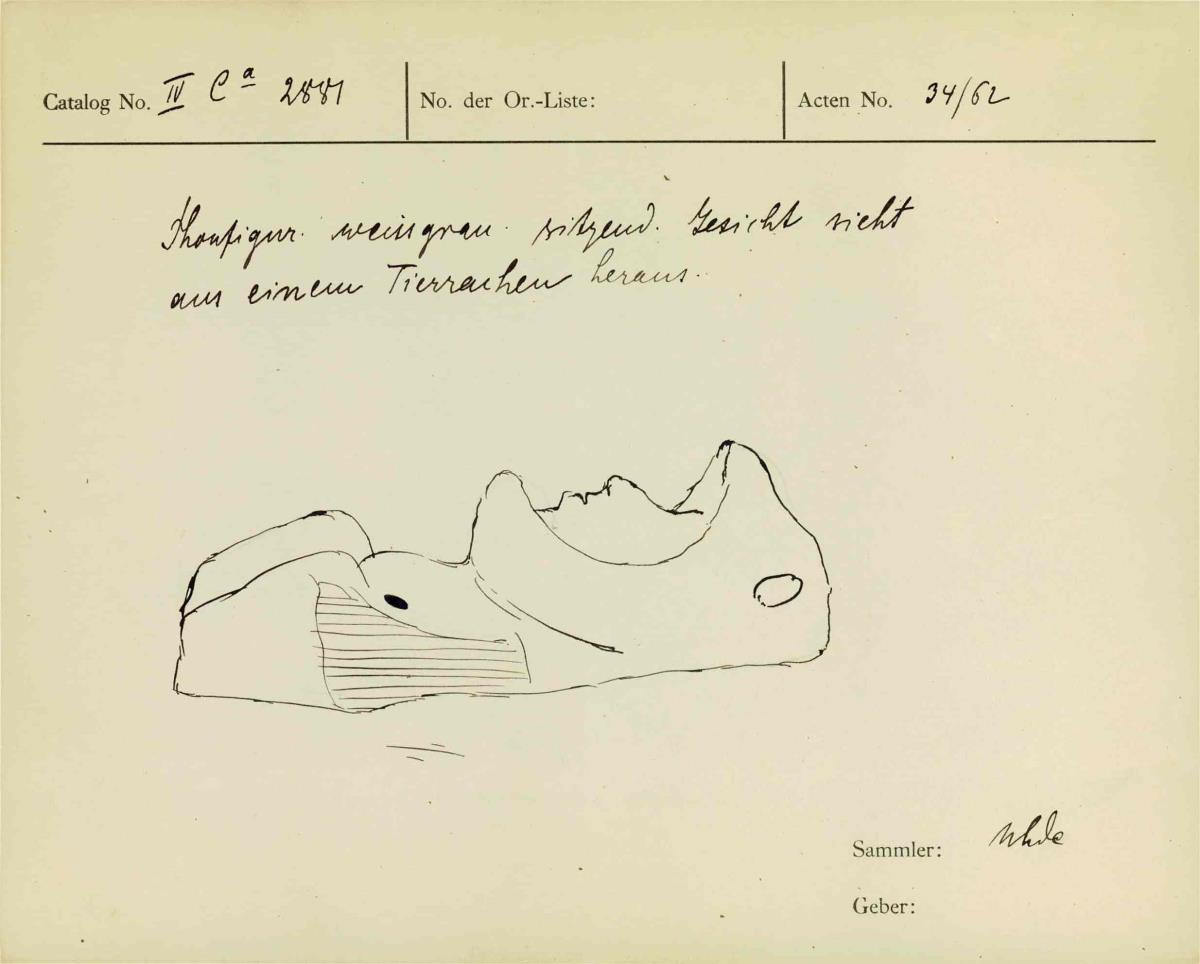 Catalog No. IV Ca 2881
No. der Or.-Liste:
Acten No. 34/62
Thonfigur. weissgrau. sitzend. Gesicht sieht
aus einem Tierrachen heraus.
Sammler: Uhde
Geber: